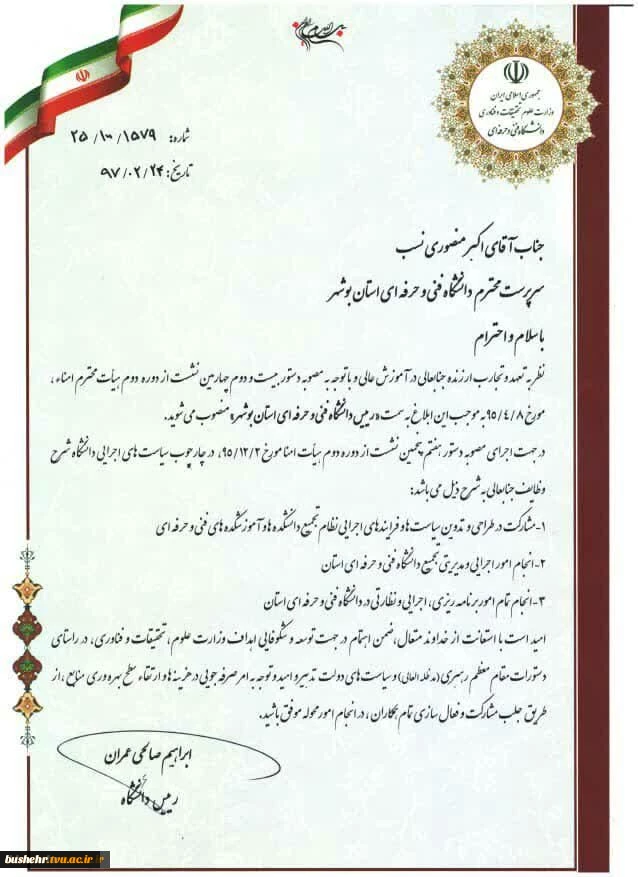 بسم الله الرحمن الرحیم
جمهوری اسلامی ایران
وزارت علوم تحقیقات و فناوری
دانشگاه فنی و حرفه ای
شماره: ۲۵/۱۰۰/۱۵۷۹
تاریخ: ۹۷/۰۲/۲۴
جناب آقای اکبر منصوری نسب
سرپرست محترم دانشگاه فنی و حرفه ای استان بوشهر
با سلام و احترام
نظر به تعهد و تجارب ارزنده جنابعالی در آموزش عالی و با توجه به مصوبه دستور بیست و دوم چهارمین نشست از دوره دوم هیأت محترم امناء ،
مورخ ۹۵/۴/۸ به موجب این ابلاغ به سمت «رییس دانشگاه فنی و حرفه ای استان بوشهر» منصوب می شوید.
در جهت اجرای مصوبه دستور هفتم پنجمین نشست از دوره دوم هیأت امنا مورخ ۹۵/۱۲/۲، در چارچوب سیاست های اجرایی دانشگاه شرح
وظایف جنابعالی به شرح ذیل می باشد:
۱-مشارکت در طراحی و تدوین سیاست ها و فرایندهای اجرایی نظام تجمیع دانشکده ها و آموزشکده های فنی و حرفه ای
۲-انجام امور اجرایی و مدیریتی تجمیع دانشگاه فنی و حرفه ای استان
۳-انجام تمام امور برنامه ریزی، اجرایی و نظارتی در دانشگاه فنی و حرفه ای استان
امید است با استعانت از خداوند متعال، ضمن اهتمام در جهت توسعه و شکوفایی اهداف وزارت علوم، تحقیقات و فناوری، در راستای
دستورات مقام معظم رهبری (مدظله العالی) و سیاست های دولت تدبیر و امید و توجه به امر صرفه جویی در هزینه ها و ارتقاء سطح بهره وری منابع ، از
طریق جلب مشارکت و فعال سازی تمام همکاران، در انجام امور محوله موفق باشید.
ابراهیم صالحی عمران
رییس دانشگاه
bushehr.tvu.ac.ir